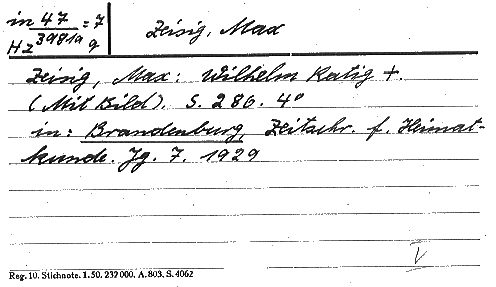 in 47 = 7
Hz 39819 g
Zeisig, Max
Zeisig, Max: Wilhelm Ratig +.
(Mit Bild). S. 286. 4°
in: Brandenburg, Zeitschr. f. Heimat-
kunde. Jg. 7. 1929
V
Reg. 10. Stichnote. 1. 50. 232000. A. 803. S. 4062